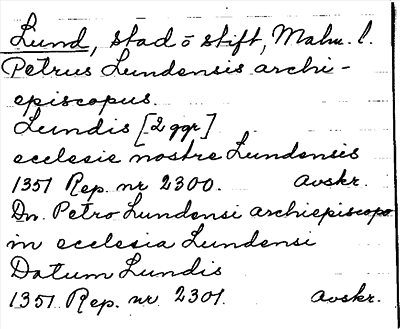 Lund, stad o stift, Malm. l.
Petrus Lundensis archi-
episcopus.
Lundis [2 ggr]
ecclesie nostre Lundensis
1351 Rep. nr 2300. Avskr.
Dn. Petro Lundensi archiepiscopo
in ecclesia Lundensi
Datum Lundis
1351. Rep. nr 2301. Avskr.